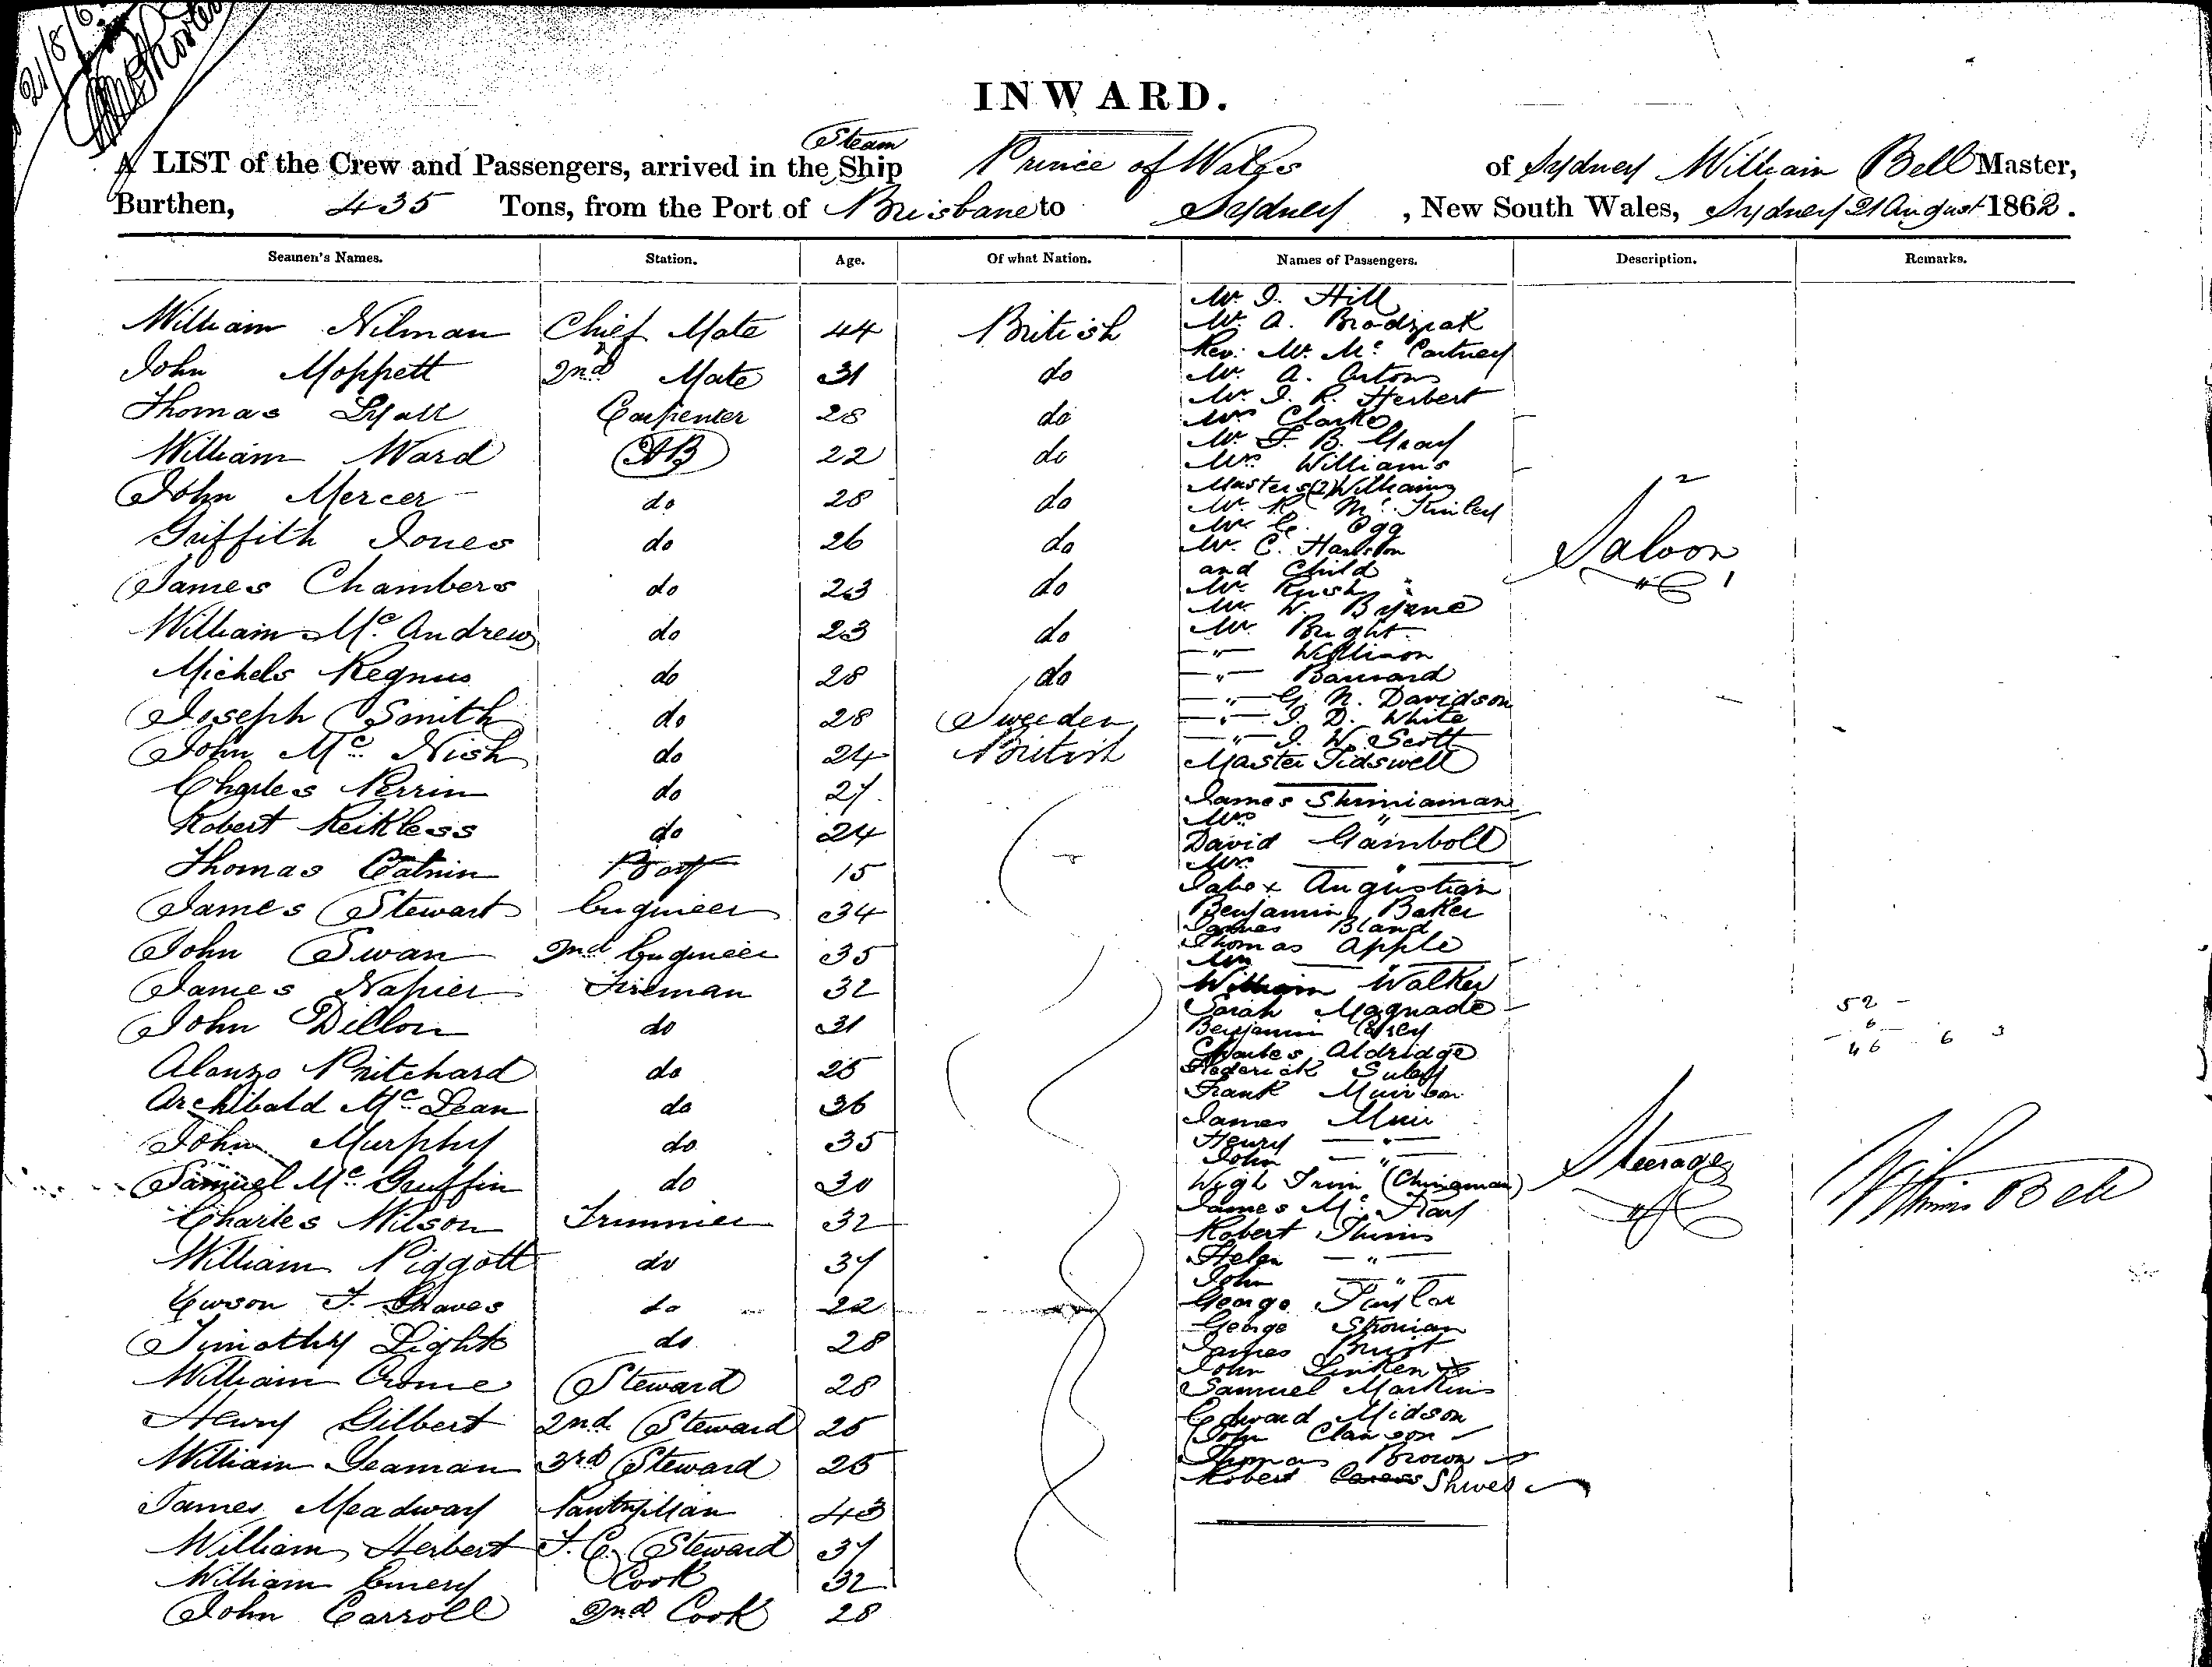 21/8/6
INWARD.
Steam
A LIST of the Crew and Passengers, arrived in the Ship Prince of Wales of Sydney William Bell Master,
Burthen, 435 Tons, from the Port of Brisbane to Sydney, New South Wales, Sydney 21 August 1862.
Seamen's Names. Station. Age. Of what Nation. Names of Passengers. Description. Remarks.
William Nilman Chief Mate 44 British
John Moppett 2nd Mate 31 do
Thomas Lyall Carpenter 28 do
William Ward AB 22 do
John Mercer do 28 do
Griffith Jones do 26 do
James Chambers do 23 do
William McAndrew do 23 do
Michels Regnus do 28 do
Joseph Smith do 28 Sweeden
John McNish do 24 British
Charles Perrin do 27
Robert Reikless do 24
Thomas Catnin Boy 15
James Stewart Engineer 34
John Swan 2nd Engineer 35
James Napier Fireman 32
John Dillon do 31
Alonzo Pritchard do 25
Archibald McLean do 36
John Murphy do 35
Samuel McGruffin do 30
Charles Wilson Trimmer 32
William Piggott do 37
T. Shaves do 22
Timothy Light do 28
William Crome Steward 28
Henry Gilbert 2nd Steward 25
William Yeaman 3rd Steward 25
James Meadway Pantryman 43
William Herbert F. C. Steward 37
William Emery Cook 32
John Carroll 2nd Cook 28
Mr. J. Hill
Mr. A. Brodziak
Rev. Mr. McCartney
Mr. A.
Mr. J. R. Herbert
Mrs Clarke
Mr. F. B. Gray
Mrs Williams
Masters (2) Williams
Mr. R. McKinley
Mr. C. Ogg
Mr. C.
and Child
Mr. Rush
Mr. W. Bryane
Mr. Bright
—"—
—"—
—"— G. N. Davidson
—"— J. D. White
—"— J. W. Scott
Master Tidswell
Saloon
James
Mrs —"—
David Gamboll
Mrs —"—
Jabez Augustian
Benjamin Baker
James Bland
Thomas Apple
Mrs —"—
William Walker
Sarah Magnade
Benjamin
Charles Aldridge
Frederick
Frank
James Muir
Henry —"—
John —"—
(Chinaman)
James Mc
Robert
Helen —"—
John —"—
George Taylor
George
James
John
Samuel Martins
Edward Midson
John
Thomas Brown
Robert
Steerage
52
6
46 6
William Bell